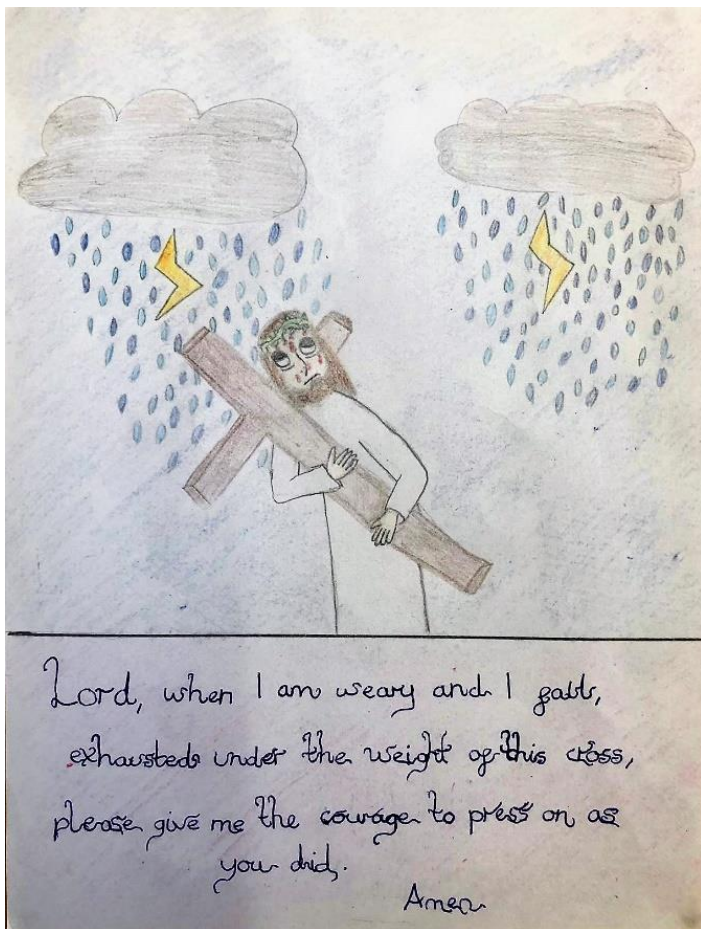 Lord, when I am weary and I fall,
exhausted under the weight of this cross,
please give me the courage to press on as
you did.
Amen